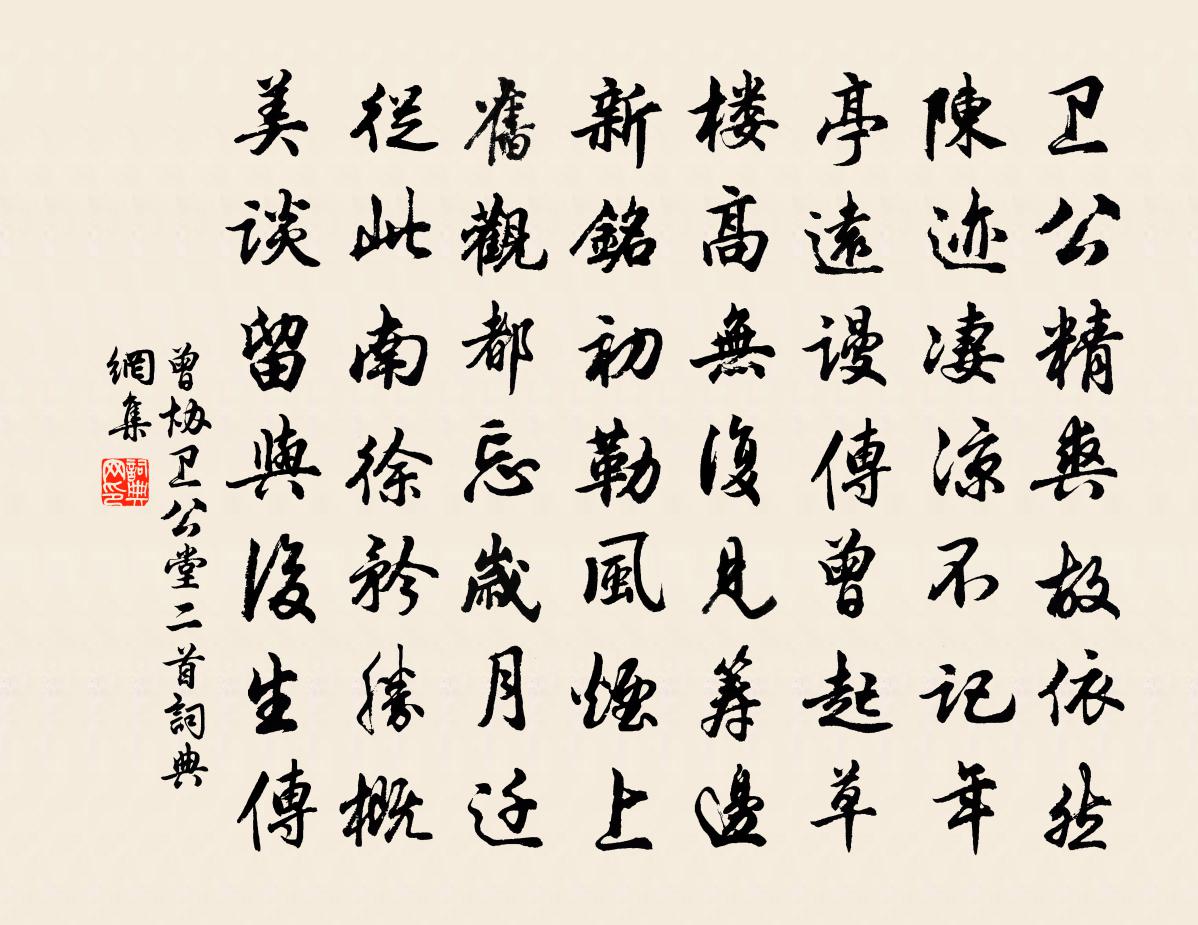 卫公精爽故依然
陳迹凄凉不记年
亭遠谩傳曾起草
楼高無復見筹邊
新銘初勒風煙上
舊觀都忘歲月迁
従此南徐矜勝概
美谈留與後生傳
曾协卫公堂二首詞典
網集
詞典
网印